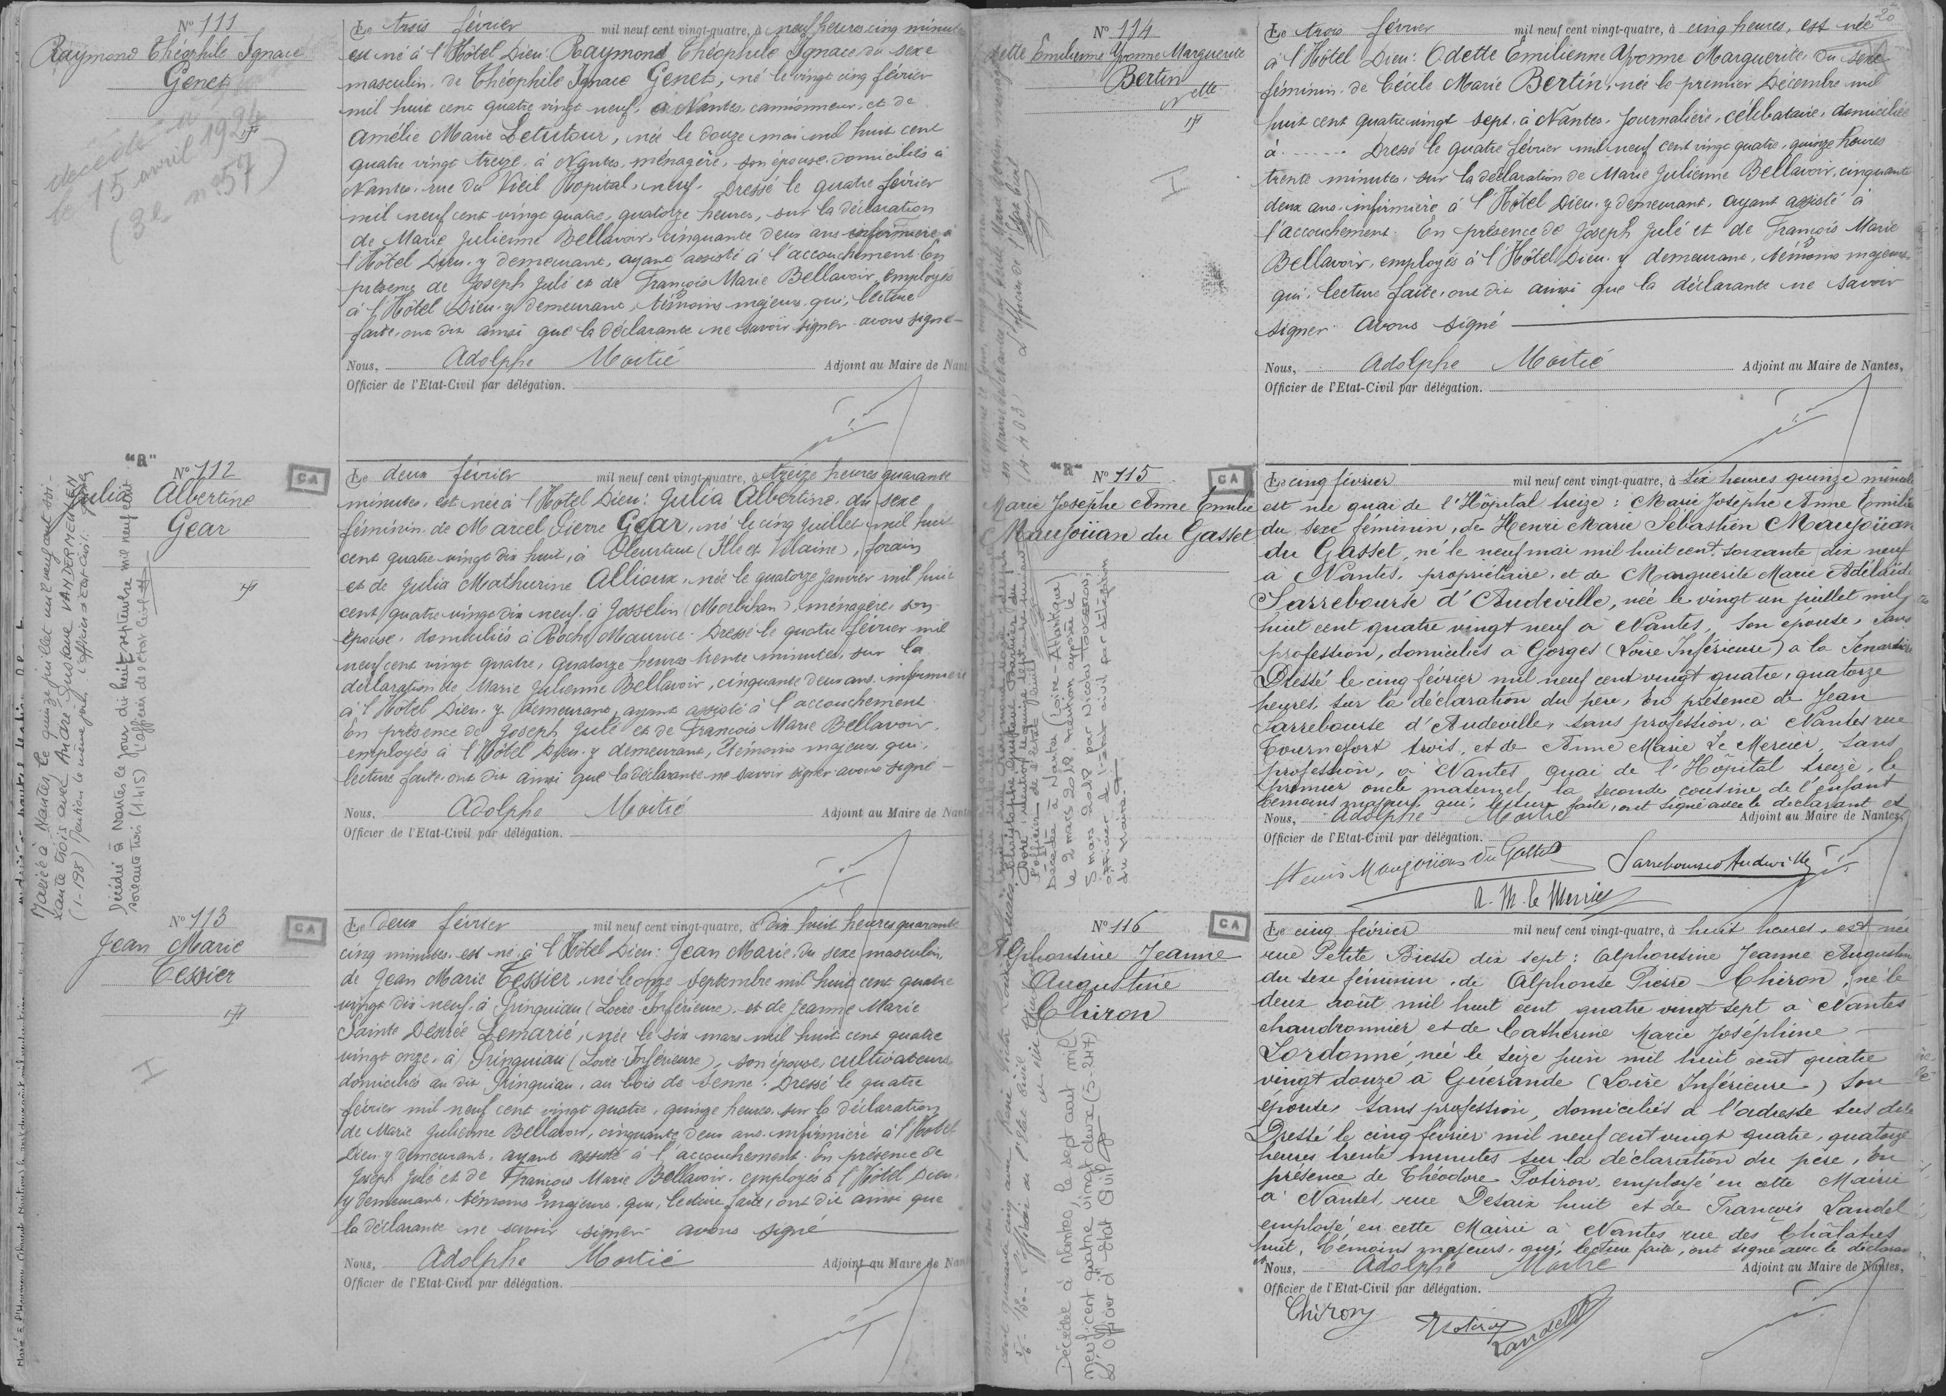 Nº 111
Raymond Théophile Ignace
Genet
décédé
le 15 avril 1924
(3e nº 57)
Le trois février mil neuf cent vingt-quatre, à neuf heures cinq minutes
est né à l'Hôtel Dieu: Raymond Théophile Ignace du sexe
masculin, de Théophile Ignace Genet, né le vingt cinq février
mil huit cent quatre vingt neuf, à Nantes, camionneur, et de
Amélie Marie Letutour, née le douze mai mil huit cent
quatre vingt treize à Nantes, ménagère, son épouse, domiciliés à
Nantes, rue du Vieil Hopital, neuf. Dressé le quatre février
mil neuf cent vingt quatre, quatorze heures, sur la déclaration
de Marie Julienne Bellavoir, cinquante deux ans infirmière à
l'Hôtel Dieu, y demeurant, ayant assisté à l'accouchement. En
présence de Joseph Julé et de François Marie Bellavoir, employés
à l'Hôtel Dieu, y demeurant, témoins majeurs, qui, lecture
faite, ont dit ainsi que la déclarante ne savoir signer avons signé
Nous, Adolphe Moitié Adjoint au Maire de Nant
Officier de l'Etat-Civil par délégation.
"R"
Nº 112
CA
Julia Albertine
Gear
Mariée à Nantes, le quinze juillet mil neuf cent soi-
xante trois avec André Gustave VANDERMEULEN
(1-198) Mention le même jour. L'officier de l'état civil.
Décédée à Nantes le jour dix huit septembre mil neuf cent
soixante trois (1415) L'officier de l'état civil
Le deux février mil neuf cent vingt-quatre, à treize heures quarante
minutes, est née à l'Hotel Dieu: Julia Albertine, du sexe
féminin de Marcel Pierre Gear, né le cinq juillet mil huit
cent quatre vingt dix huit, à Pleurtuit (Ille et Vilaine), forain
et de Julia Mathurine Allioux, née le quatorze janvier mil huit
cent quatre vingt dix neuf, à Josselin (Morbihan), ménagère, son
épouse, domiciliés à Roche Maurice. Dressé le quatre février mil
neuf cent vingt quatre, quatorze heures trente minutes, sur la
déclaration de Marie Julienne Bellavoir, cinquante deux ans, infirmière
à l'Hôtel Dieu, y demeurant, ayant assisté à l'accouchement.
En présence de Joseph Julé et de François Marie Bellavoir,
employés à l'Hôtel Dieu, y demeurant, témoins majeurs, qui,
lecture faite, ont dit ainsi que la déclarante ne savoir signer avons signé
Nous, Adolphe Moitié Adjoint au Maire de Nant
Officier de l'Etat-Civil par délégation.
Nº 113
CA
Jean Marie
Tessier
Le deux février mil neuf cent vingt-quatre, à dix huit heures quarante
cinq minutes, est né à l'Hôtel Dieu: Jean Marie, du sexe masculin,
de Jean Marie Tessier, né le onze septembre mil huit cent quatre
vingt dix neuf, à Prinquiau (Loire Inférieure), et de Jeanne Marie
Sainte Désirée Lemarié, née le six mars mil huit cent quatre
vingt onze, à Prinquiau (Loire Inférieure), son épouse, cultivateurs
domiciliés au dit Prinquiau, au bois de Senne. Dressé le quatre
février mil neuf cent vingt quatre, quinze heures, sur la déclaration
de Marie Julienne Bellavoir, cinquante deux ans, infirmière à l'Hotel
Dieu, y demeurant, ayant assisté à l'accouchement. En présence de
Joseph Julé et de François Marie Bellavoir, employés à l'Hôtel Dieu,
y demeurant, témoins majeurs, qui, lecture faite, ont dit ainsi que
la déclarante ne savoir signer avons signé
Nous, Adolphe Moitié Adjoint au Maire de Nan
Officier de l'Etat-Civil par délégation.
20
Nº 114
Odette Emilienne Yvonne Marguerite
Bertin
Nette
Le trois février mil neuf cent vingt-quatre, à cinq heures, est née
à l'Hôtel Dieu: Odette Emilienne Yvonne Marguerite du sexe
féminin, de Cécile Marie Bertin, née le premier Décembre mil
huit cent quatre vingt sept, à Nantes, journalière, célibataire, domiciliée
à ...... Dressé le quatre février mil neuf cent vingt quatre, quinze heures
trente minutes, sur la déclaration de Marie Julienne Bellavoir, cinquante
deux ans, infirmière à l'Hôtel Dieu, y demeurant, ayant assisté à
l'accouchement. En présence de Joseph Julé et de François Marie
Bellavoir, employés à l'Hôtel Dieu, y demeurant, témoins majeurs,
qui, lecture faite, ont dit ainsi que la déclarante ne savoir
signer avons signé
Nous, Adolphe Moitié Adjoint au Maire de Nantes,
Officier de l'Etat-Civil par délégation.
"R"
Nº 115
CA
Marie Josèphe Anne Emilie
Maujoüan du Gasset
Décédée à Nantes (Loire-Atlantique)
le 2 mars 2018. mention apposée le
5 mars 2018 par Nicolas
officier de l'état civil par délégation
du maire.
Le cinq février mil neuf cent vingt-quatre, à six heures quinze minutes
est née quai de l'Hôpital treize: Marie Josèphe Anne Emilie
du sexe féminin, de Henri Marie Sébastien Maujoüan
du Gasset, né le neuf mai mil huit cent soixante dix neuf
à Nantes, propriétaire, et de Marguerite Marie Adélaïde
Sarrebourse d'Audeville, née le vingt un juillet mil
huit cent quatre vingt neuf à Nantes, son épouse, sans
profession, domiciliés à Gorges (Loire Inférieure) à la Senardière
Dressé le cinq février mil neuf cent vingt quatre, quatorze
heures, sur la déclaration du père, en présence de Jean
Sarrebourse d'Audeville, sans profession, à Nantes rue
Tournefort trois, et de Anne Marie Le Mercier, sans
profession, à Nantes quai de l'Hôpital treize, le
premier oncle maternel, la seconde cousine de l'enfant
témoins majeurs, qui, lecture faite, ont signé avec le déclarant et
Nous, Adolphe Moitié Adjoint au Maire de Nantes,
Officier de l'Etat-Civil par délégation.
Henri Maujoüan du Gasset Sarrebourse d'Audeville
A. M. le Mercier
Nº 116
CA
Alphonsine Jeanne
Augustine
Chiron
Décédée à Nantes, le sept août mil
neuf cent quatre vingt deux (5-247)
L'officier d'état Civil
Le cinq février mil neuf cent vingt-quatre, à huit heures, est née
rue Petite Biesse dix sept: Alphonsine Jeanne Augustine
du sexe féminin, de Alphonse Pierre Chiron, né le
deux août mil huit cent quatre vingt sept à Nantes
chaudronnier et de Catherine Marie Joséphine
Lordonné, née le seize juin mil huit cent quatre
vingt douze à Guérande (Loire Inférieure) son
épouse, sans profession, domiciliés à l'adresse sus dite
Dressé le cinq février mil neuf cent vingt quatre, quatorze
heures trente minutes sur la déclaration du père, en
présence de Théodore Potiron, employé en cette Mairie
à Nantes, rue Desaix huit et de François Landel
employé en cette Mairie à Nantes rue des Châlatres
huit, témoins majeurs, qui, lecture faite, ont signé avec le déclarant
et Nous, Adolphe Moitié Adjoint au Maire de Nantes,
Officier de l'Etat-Civil par délégation.
Chiron
Potiron
Landel